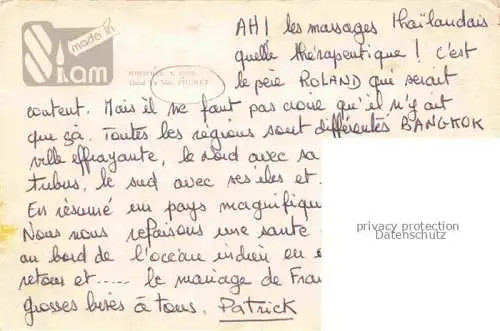 made in
Siam
PHUKET
AH! les massages thaïlandais.
quelle thérapeutique! c'est
le père ROLAND qui serait
content. Mais il ne faut pas croire qu'il n'y ait
que ça. Toutes les régions sont différentes BANGKOK
ville effrayante, le nord avec sa
tribus, le sud avec ses îles et
En résumé un pays magnifiqu
Nous nous refaisons une santé
au bord de l'océan indien en
retour et..... le mariage de Fran
grosses bises à tous. Patrick
privacy protection
Datenschutz